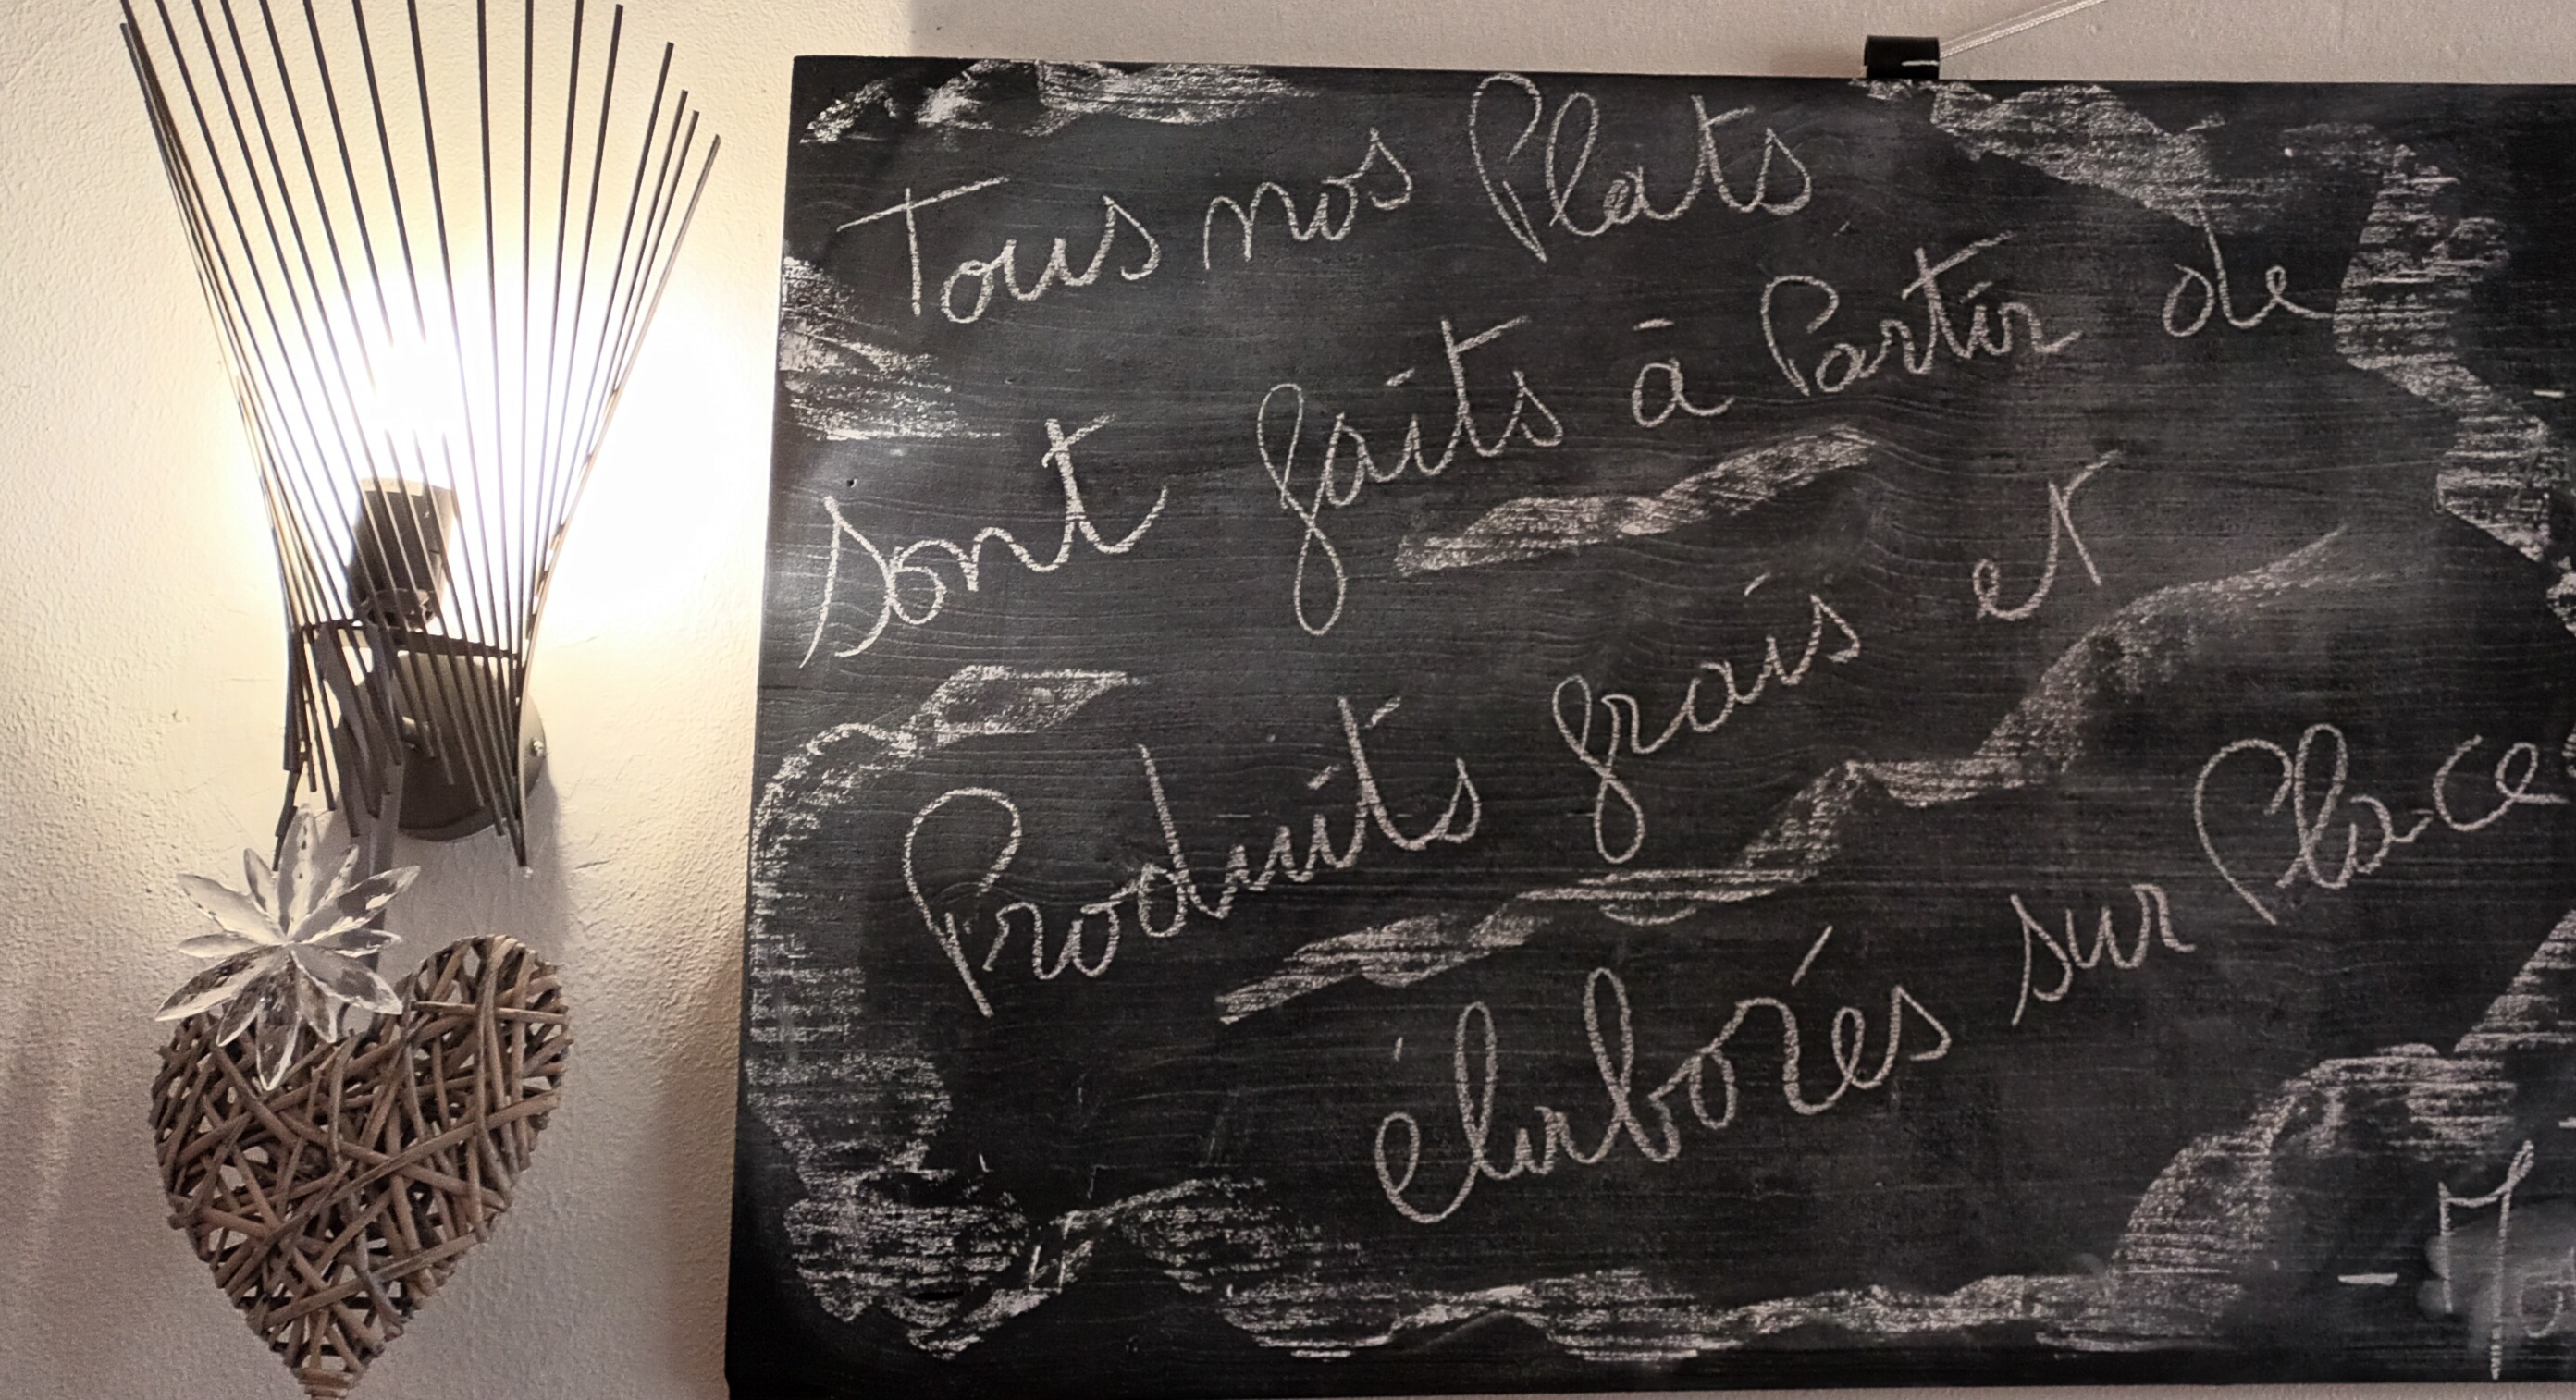 Tous nos Plats
sont faits à Partir de
Produits frais et
élaborés sur Place